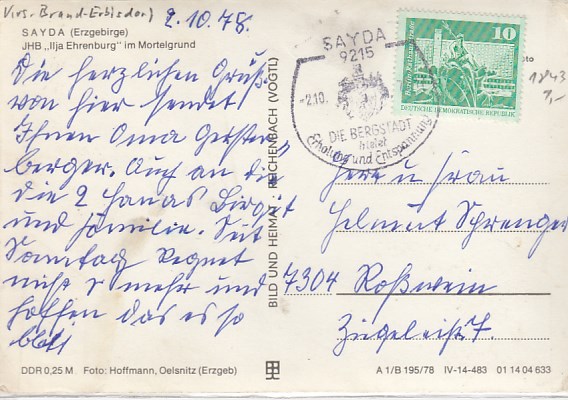 Krs. Brand-Erbisdorf
2.10.78.
SAYDA (Erzgebirge)
JHB „Ilja Ehrenburg" im Mortelgrund
Die herzlichen Grüße
von hier sendet
Ihnen Oma Gersten
berger. Auch an die
die 2 Hanas Birgit
und Familie. Seit
Sonntag Regnet
nicht mehr und
hoffen das es so
bleibt
DDR 0,25 M Foto: Hoffmann, Oelsnitz (Erzgeb)
BILD UND HEIMAT REICHENBACH (VOGTL)
SAYDA
9215
-2.10.
DIE BERGSTADT
bietet
Erholung und Entspannung
10
DEUTSCHE DEMOKRATISCHE REPUBLIK
oto
1843
Herr u Frau
Helmut Sprenger
7304 Roßwein
Ziegeleistr 7.
A 1/B 195/78 IV-14-483 01 14 04 633